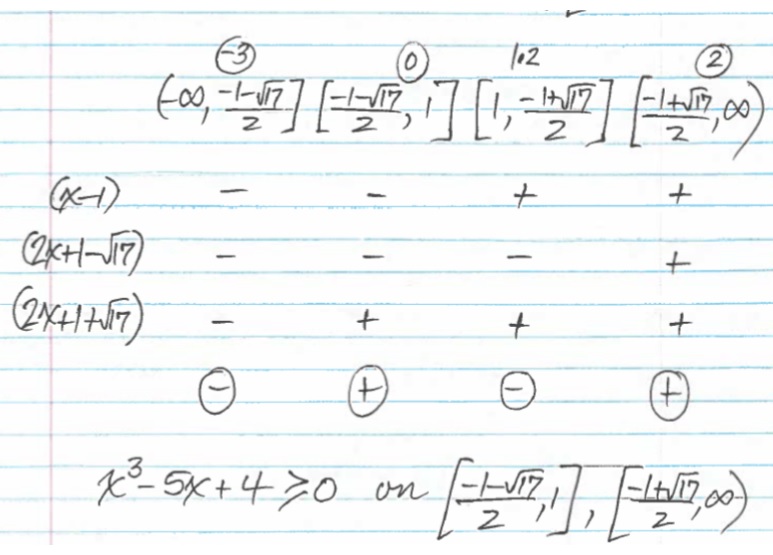 -3 0 1.2 2
(-∞, (-1-√17)/2] [(-1-√17)/2, 1] [1, (-1+√17)/2] [(-1+√17)/2, ∞)
(x-1) - - + +
(2x+1-√17) - - - +
(2x+1+√17) - + + +
- + - +
x³-5x+4 ≥ 0 on [(-1-√17)/2, 1], [(-1+√17)/2, ∞)